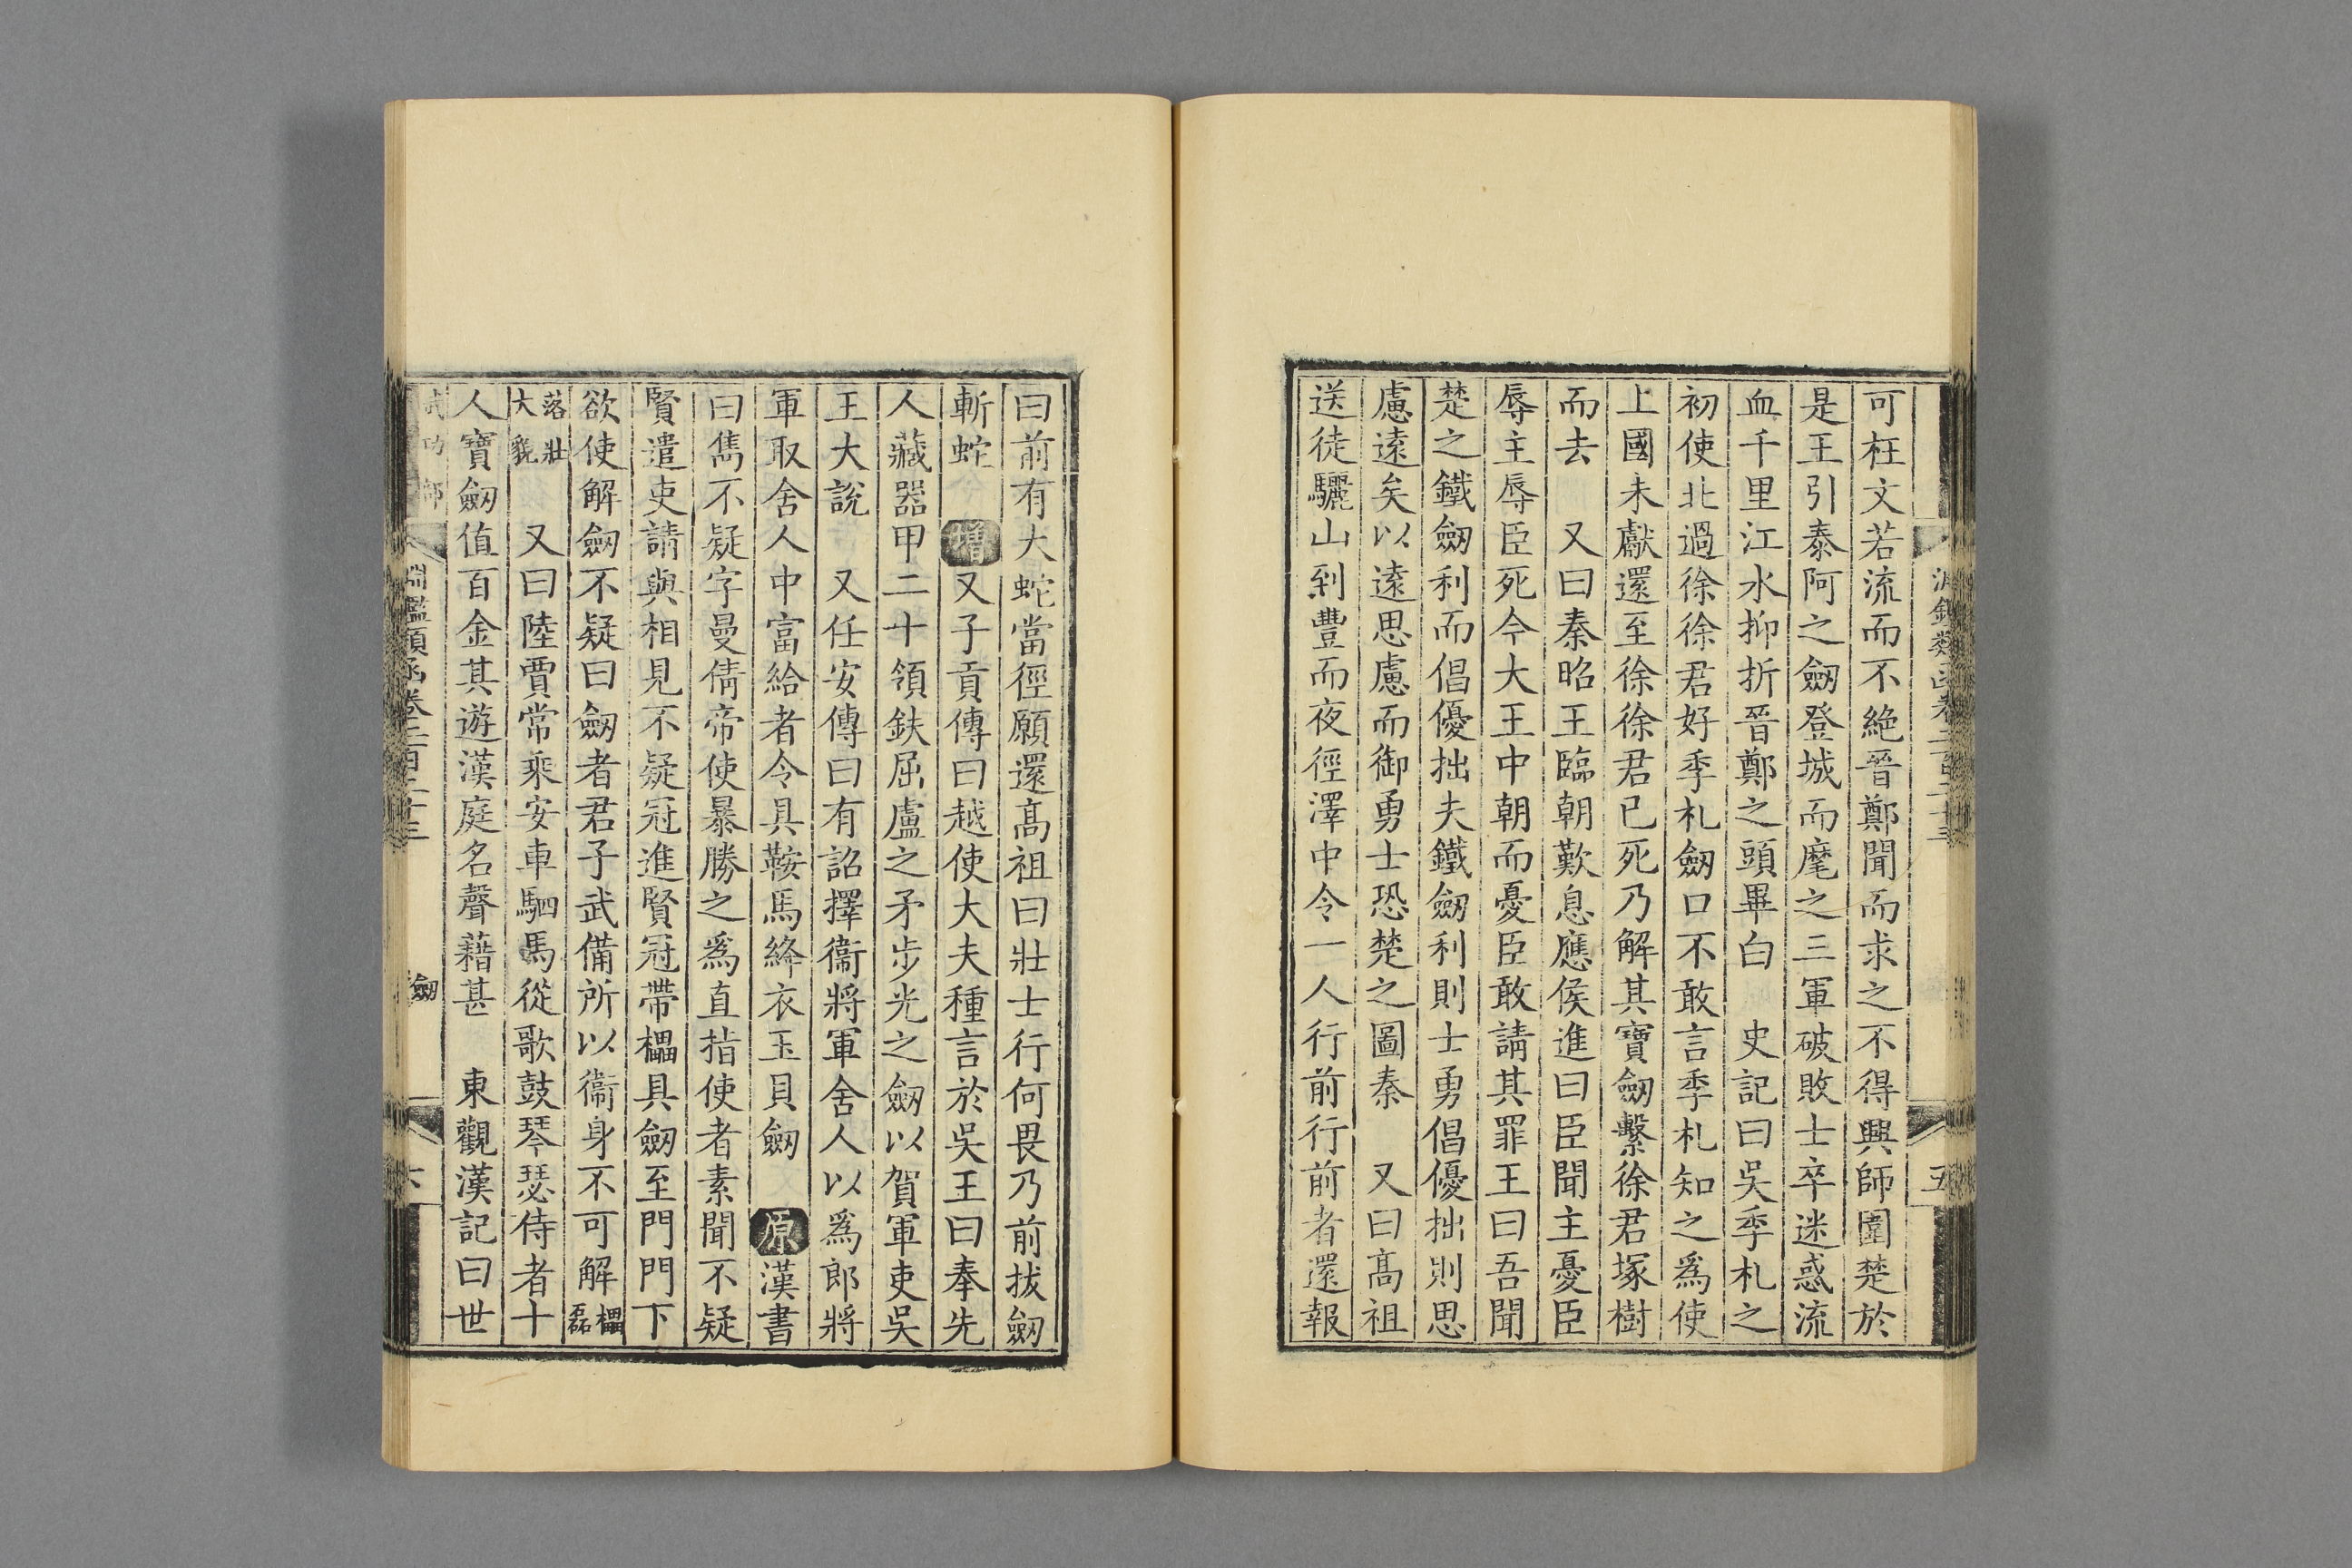 可枉文若流而不絶晉鄭聞而求之不得興師圍楚於
是王引泰阿之劒登城而麾之三軍破敗士卒迷惑流
血千里江水抑折晉鄭之頭畢白 史記曰吳季札之
初使北過徐徐君好季札劒口不敢言季札知之爲使
上國未獻還至徐徐君已死乃解其寶劒繫徐君塚樹
而去 又曰秦昭王臨朝歎息應侯進曰臣聞主憂臣
辱主辱臣死今大王中朝而憂臣敢請其罪王曰吾聞
楚之鐵劒利而倡優拙夫鐵劒利則士勇倡優拙則思
慮遠矣以遠思慮而御勇士恐楚之圖秦 又曰髙祖
送徒驪山到豐而夜徑澤中令一人行前行前者還報
曰前有大蛇當徑願還髙祖曰壯士行何畏乃前拔劒
斬蛇 增又子貢傳曰越使大夫種言於吳王曰奉先
人藏器甲二十領鈇屈盧之矛步光之劒以賀軍吏吳
王大說 又任安傳曰有詔擇衞將軍舍人以爲郎將
軍取舍人中富給者令具鞍馬絳衣玉貝劒 原漢書
曰雋不疑字曼倩帝使暴勝之爲直指使者素聞不疑
賢遣吏請與相見不疑冠進賢冠帶櫑具劒至門門下
欲使解劒不疑曰劒者君子武備所以衞身不可解櫑磊
落壯大貌 又曰陸賈常乘安車駟馬從歌鼓琴瑟侍者十
人寶劒值百金其遊漢庭名聲藉甚 東觀漢記曰世
淵鑑類函卷二百二十三 劒 六